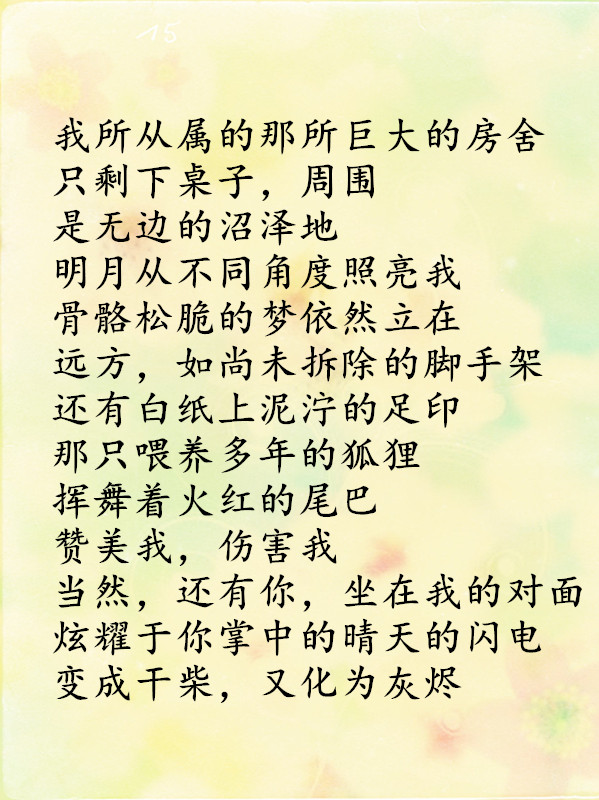 15
我所从属的那所巨大的房舍
只剩下桌子，周围
是无边的沼泽地
明月从不同角度照亮我
骨骼松脆的梦依然立在
远方，如尚未拆除的脚手架
还有白纸上泥泞的足印
那只喂养多年的狐狸
挥舞着火红的尾巴
赞美我，伤害我
当然，还有你，坐在我的对面
炫耀于你掌中的晴天的闪电
变成干柴，又化为灰烬